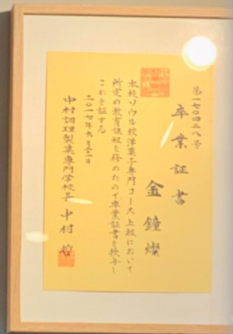 第一七〇四二八号
卒業証書
金鐘燦
本校ソウル校洋菓子専門コース上級において
所定の教育課程を修めたので卒業証書を授与し
これを証する
二〇一七年九月
中村調理製菓専門学校長 中村 哲